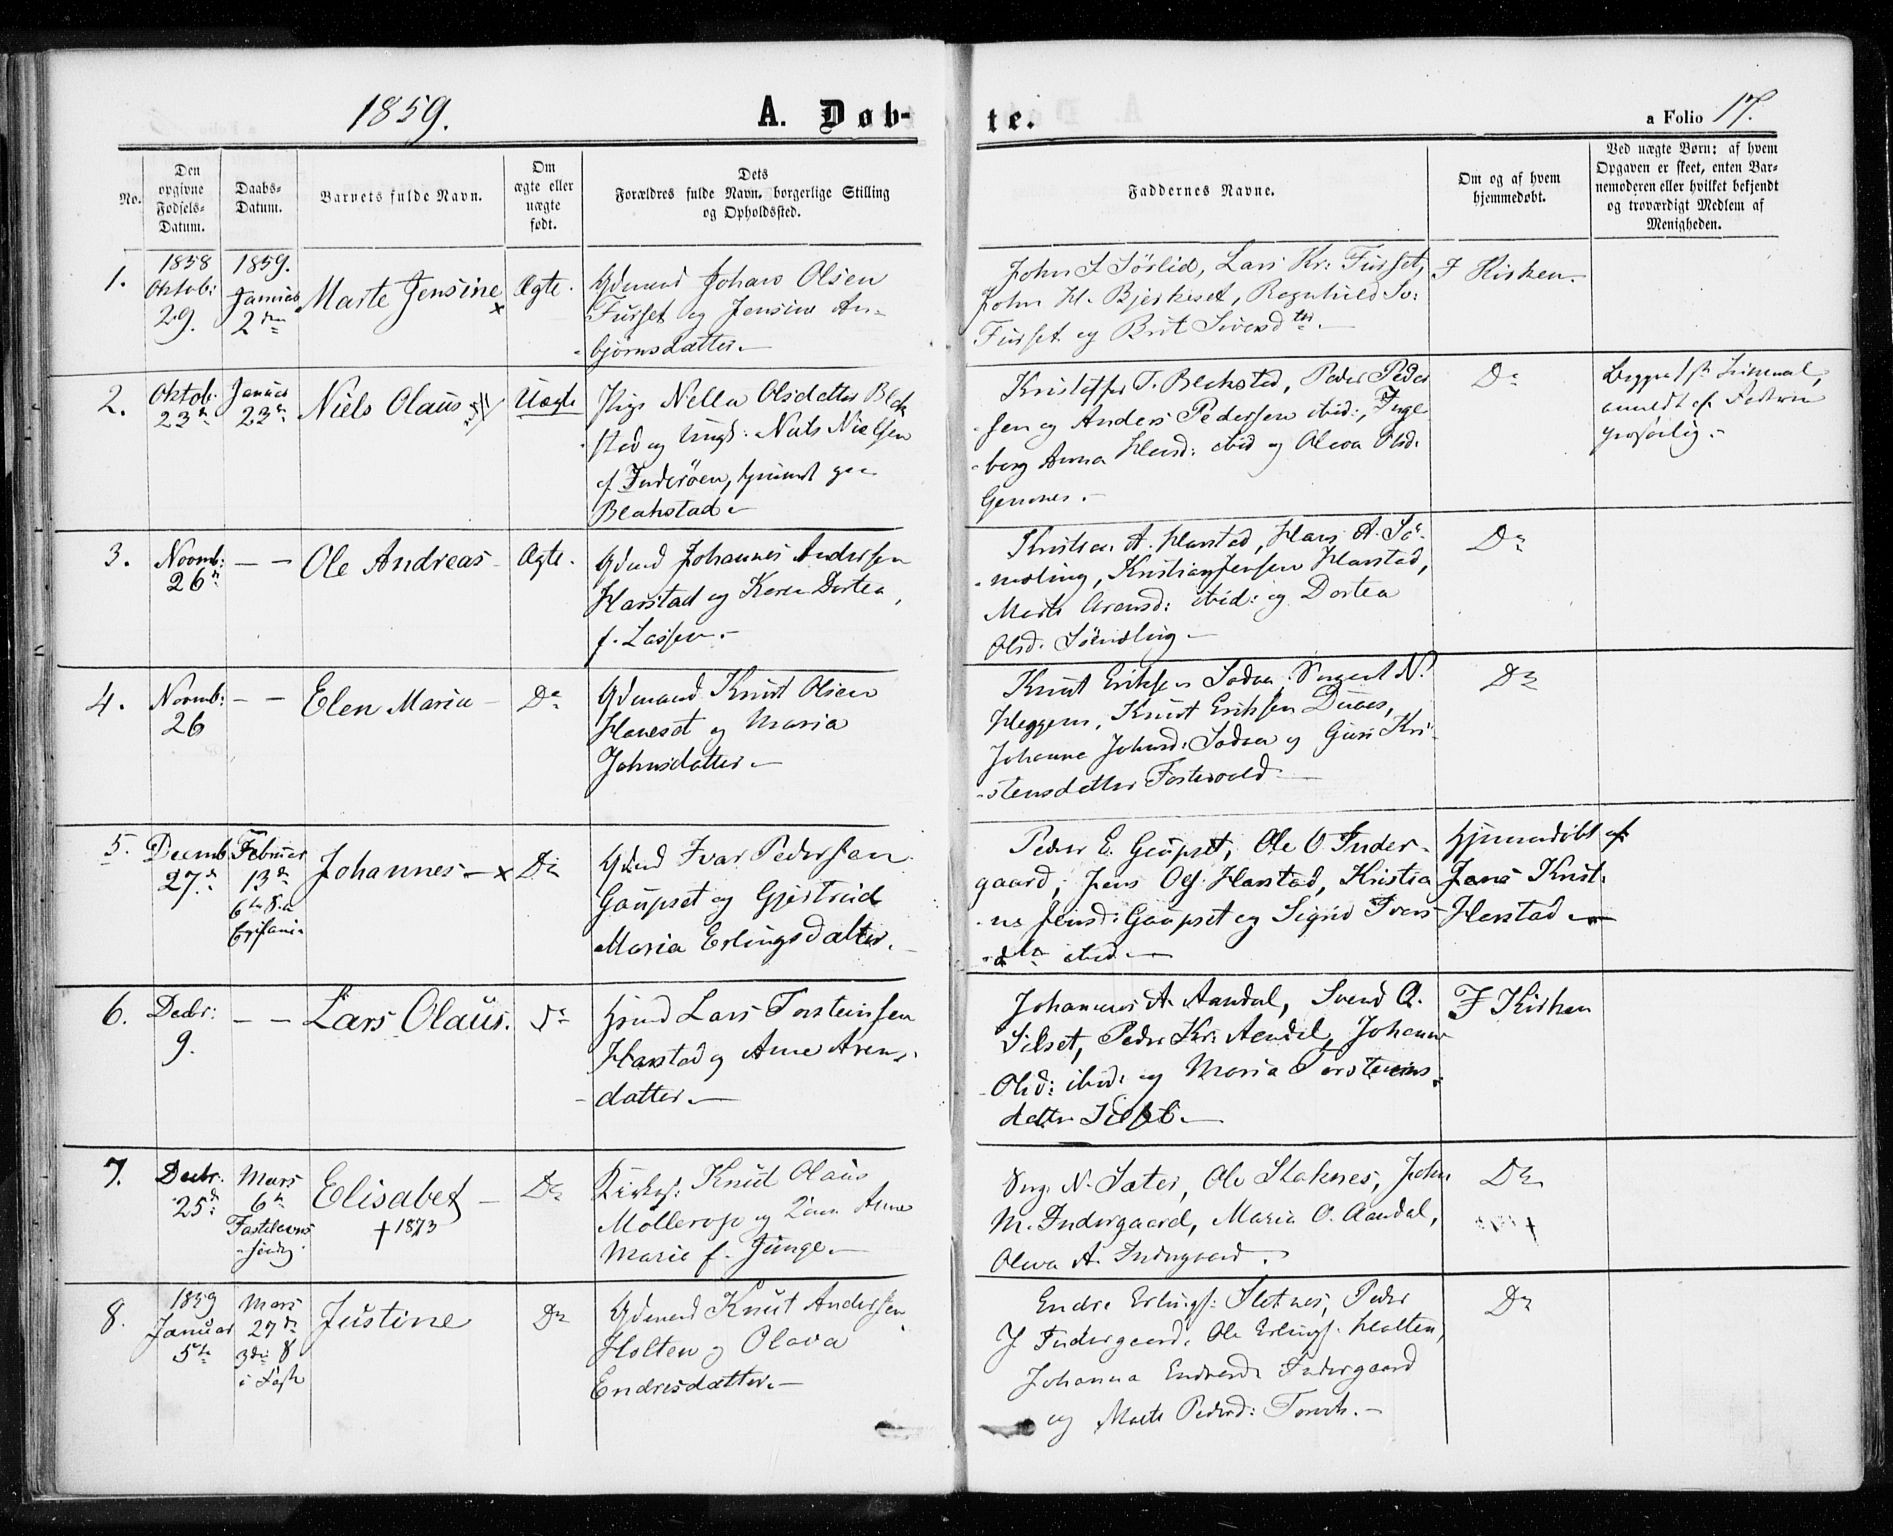 1859. A. Døb- te. a Folio 17.
No.
Den opgivne Fødsels-Datum.
Daabs-Datum.
Barnets fulde Navn.
Om ægte eller uægte født.
Dets Forældres fulde Navn, borgerlige Stilling og Opholdssted.
Faddernes Navne.
Om og af hvem hjemmedøbt.
Ved uægte Børn: af hvem Opgaven er skeet, enten Barnemoderen eller hvilket bekjendt og troværdigt Medlem af Menigheden.
1.
1858
Oktob:
29.
1859.
Januar
2den
Marte Jensine x
Ægte.
Gdmand Johans Olsen
Furset og Jensine An-
bjørnsdatter.
John I Sörlid, Lars Kr: Furset,
John H. Bjerkeset, Ragnhild
Furset og Brit Siversdtr
I Kirken.
2.
Oktob.
23
Januar
23
Niels Olaus
Uægte
Pige Nella Olsdatter Blek
stad og Ungk: Nils Nielsen
f. Inderöen,
Blakstad
Kristoffer T. Blekstad, Peder Peder
sen og Anders Pedersen ibid:, Inge
borg Anna ibid og Oleva Olsd:
Gennes.
Do
3.
Novmb:
26
— —
Ole Andreas
Ægte.
Gdmd Johannes Andersen
Harstad og Karen Dortea,
f. Lassen.
Kristian A. Harstad, Hans A. Sö-
Kristian Jensen Harstad,
Marte Arensd: ibid: og Dortea
Olsd.
Do
4.
Novmb:
26
— —
Elen Maria
Do
Gdmand Knut Olsen
Haneset og Maria
Johnsdatter
Knut Eriksen Sodaa Sivert N.
Heggem, Knut Eriksen
Johanna Johnsd: Sodaa og Guri Kri-
stensdatter Fostervold
Do
5.
Decmb
27.
Februar
13
6te S. e
Epifani.
Johannes x
Do
Gdmd Ivar Pedersen
Gaupset og Gjertrud
Maria Erlingsdatter.
Peder E. Gaupset, Ole O Inder-
gaard, Jens Ols. Harstad, Kristia
ne Jensd: Gaupset og Sigrid Ivers
ibid.
hjemmedöbt af
Jens Krist.
Harstad
6.
Decbr:
9.
— —
Lars Olaus.
Do
Lars Torsteinsen
Harstad og Anne Arens
datter.
Johannes A. Aandal, Svend O.
Silset, Peder Kr: Aandal, Johanna
Olsd: ibid: og Maria Torsteins
datter Silset.
I Kirken
7.
Decbr.
25
Mars
6
Fastelavns
Elisabet
† 1873
Do
Kirkes: Knud Olaus
Möllerop og Anne
Marie f. Junge.
N. Sater, Ole Stoknes, John
M. Indergaard, Maria O. Aandal,
Oleva A. Indergaard.
Do
8.
1859
Januar
5te
Mars
27
3die S
i Faste
Justine
Do
Gdmand Knut Andersen
Holten og Olava
Endresdatter.
Endre Erlings: Sletnes, Peder
J Indergaard, Ole Erlings. Holten,
Johanna Indergaard
og Marte Pedersd:
Do